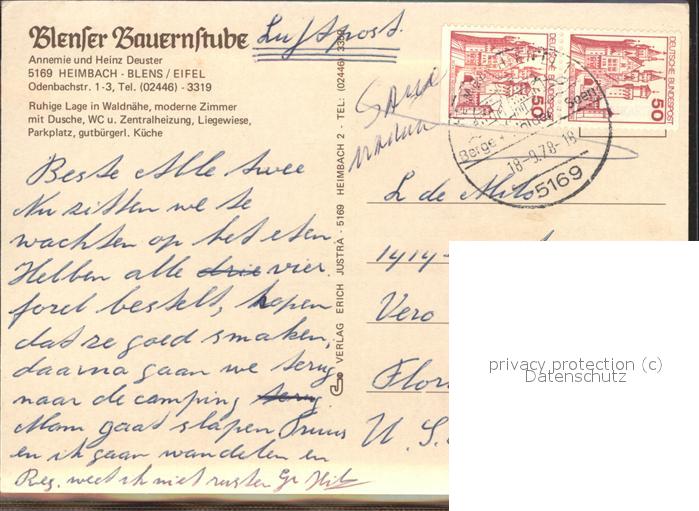 Blenser Bauernstube
Luftpost
Annemie und Heinz Deuster
5169 HEIMBACH - BLENS / EIFEL
Odenbachstr. 1-3, Tel. (02446) - 3319
Ruhige Lage in Waldnähe, moderne Zimmer
mit Dusche, WC u. Zentralheizung, Liegewiese,
Parkplatz, gutbürgerl. Küche
Beste Alle twee
Nu zitten we te
wachten op het eten
Hebben alle drie vier
forel bestelt, hopen
dat ze goed smaken,
daarna gaan we terug
naar de camping terug.
Mam gaat slapen Truus
en ik gaan wandelen en
Reg. weet ik niet Gr
VERLAG ERICH JUSTRA · 5169 HEIMBACH 2 - TEL: (02446) 3389
DEUTSCHE BUNDESPOST
50
DEUTSCHE BUNDESPOST
50
18-9.78-18
5169
L de Milo
1414-
Vero
Flor
U. S.
privacy protection (c)
Datenschutz